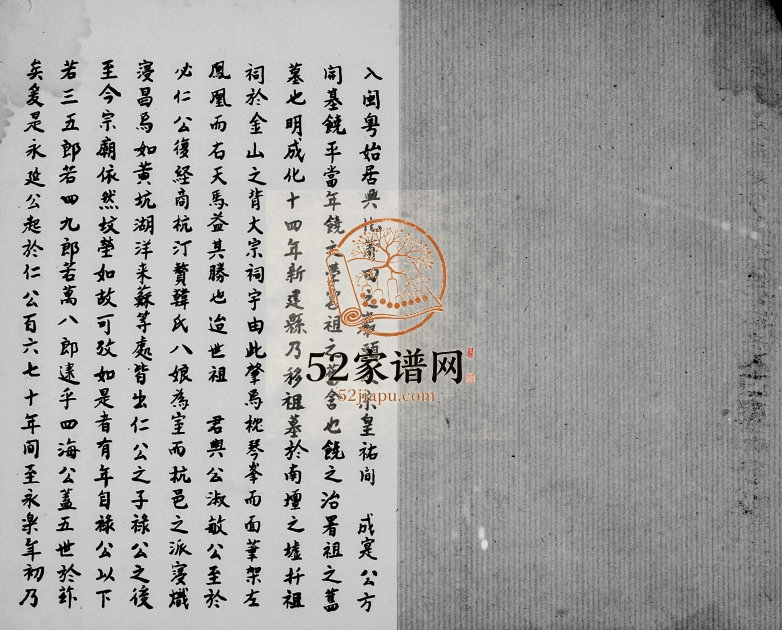 入閩粤始居興化莆田之 宋皇祐间 成寔公方
開基饒平當年饒之 祖之 舍也饒之治署祖之舊
墓也明成化十四年新建縣乃移祖墓於南壇之墟扦祖
祠於金山之背大宗祠宇由此肇焉枕琴峯而面筆架左
鳳凰而右天馬益其勝也迨世祖 君與公淑敏公至於
必仁公復経商杭汀贅韓氏八娘為室而杭邑之派寖熾
寖昌焉如黄坑湖洋来蘇等處皆出仁公之子祿公之後
至今宗廟依然坟塋如故可攷如是者有年自祿公以下
若三五郎若四九郎若萬八郎逺乎四海公蓋五世於
矣爰是永延公起於仁公百六七十年间至永楽年初乃
52家谱网
52jiapu.com